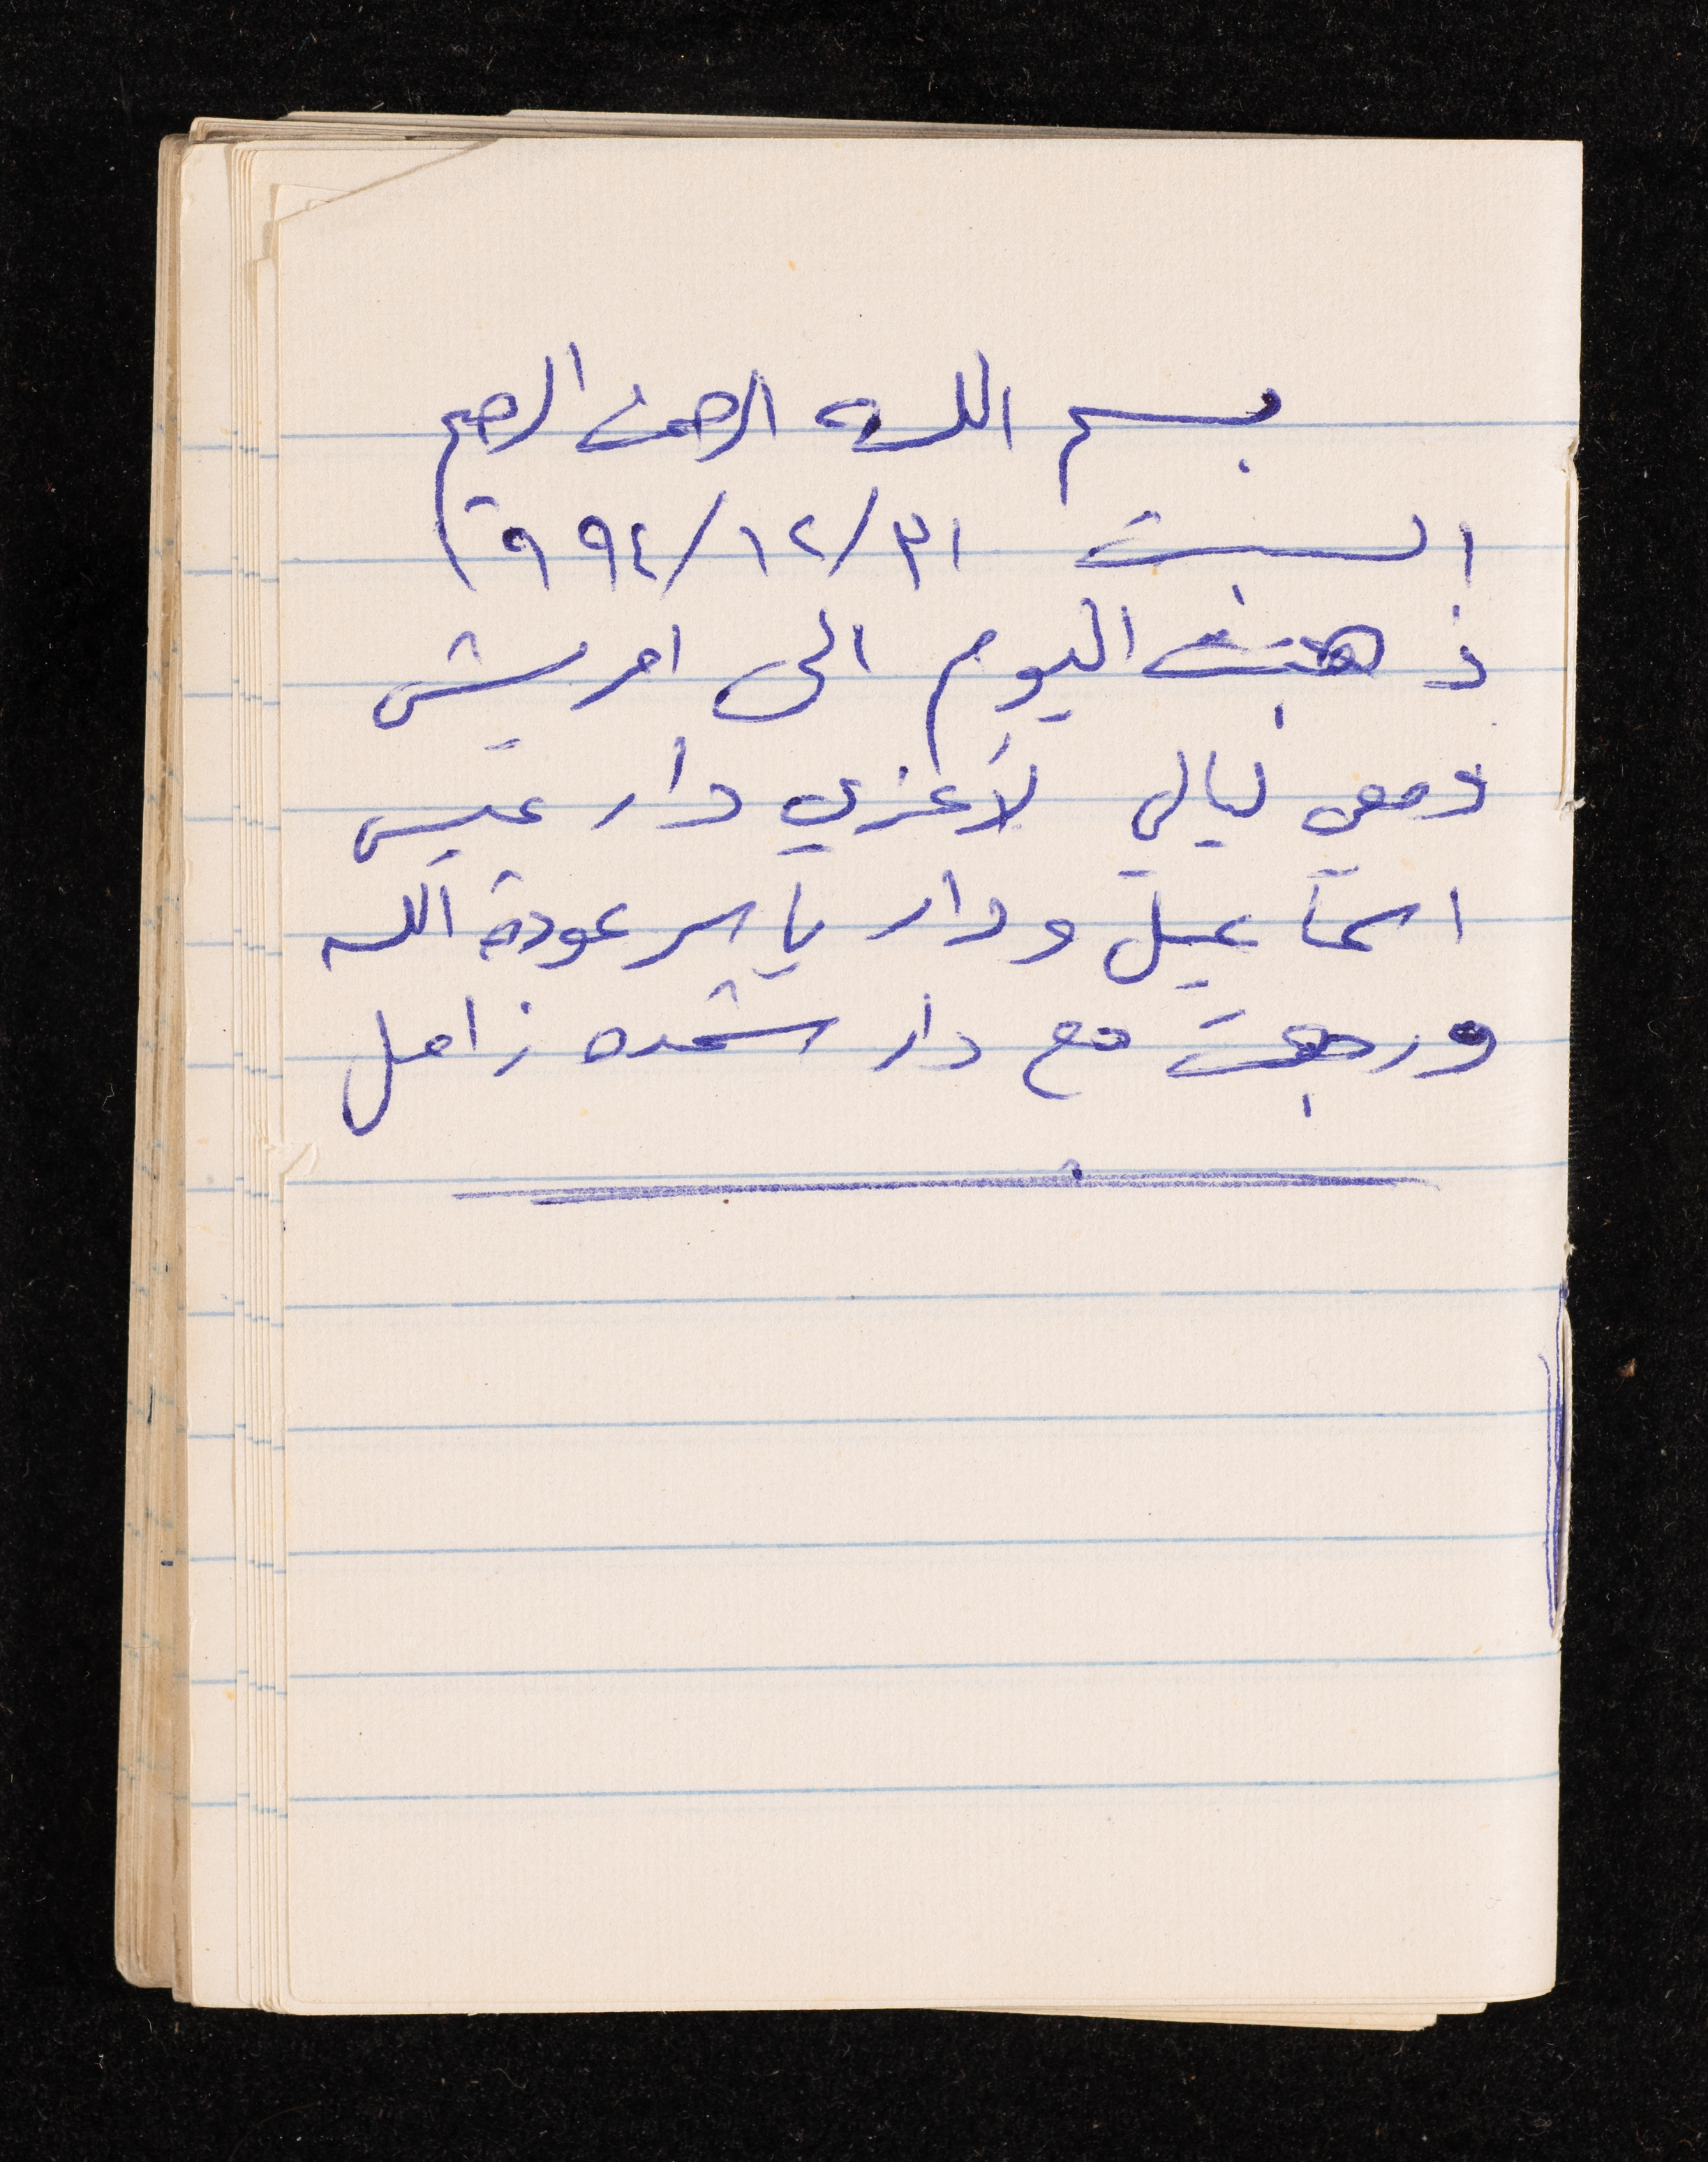 بسم الله الرحمن الرحيم
السبت ٣١/١٢/١٩٩٤
ذهبت اليوم الى امريش
ومعي ليالي لأعزي دار عيسى
اسماعيل ودار ياسر عودة الله
ورجعت مع دار شحده زامل